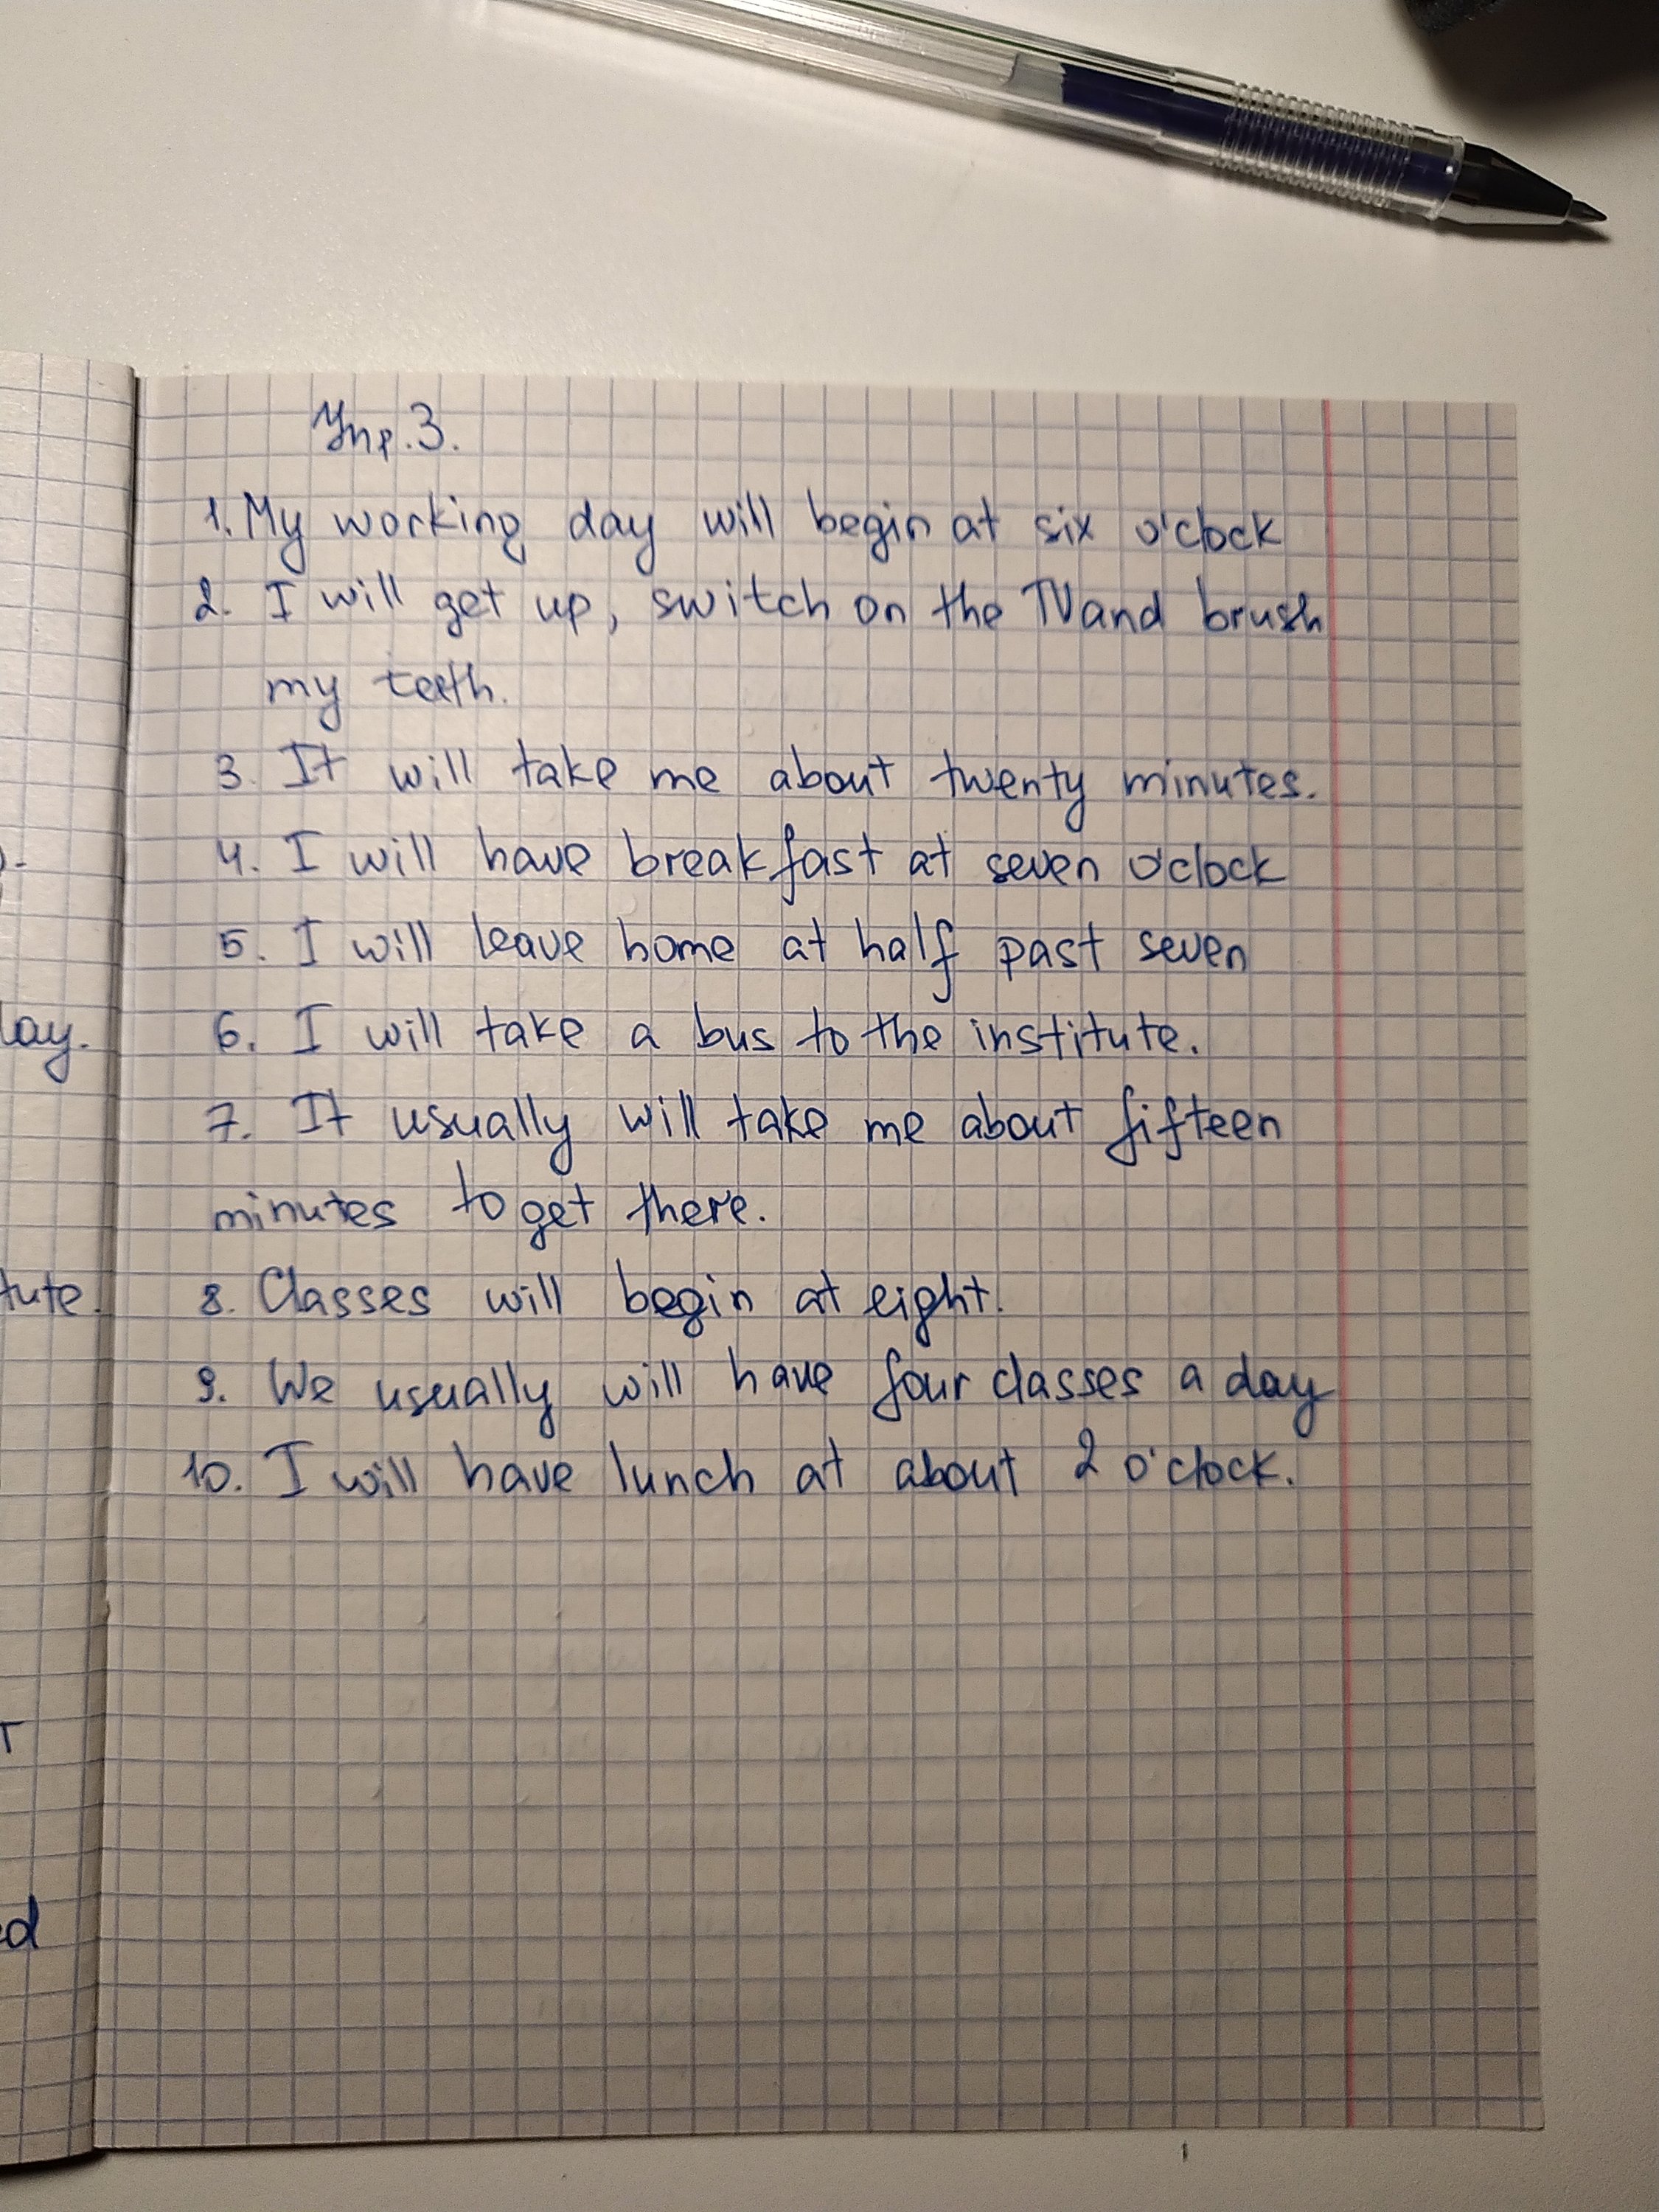 Упр.3.
1. My working day will begin at six o'clock
2. I will get up, switch on the TV and brush
my teeth.
3. It will take me about twenty minutes.
4. I will have breakfast at seven o'clock
5. I will leave home at half past seven
lay.
6. I will take a bus to the institute.
7. It usually will take me about fifteen
minutes to get there.
tute.
8. Classes will begin at eight.
9. We usually will have four classes a day
10. I will have lunch at about 2 o'clock.